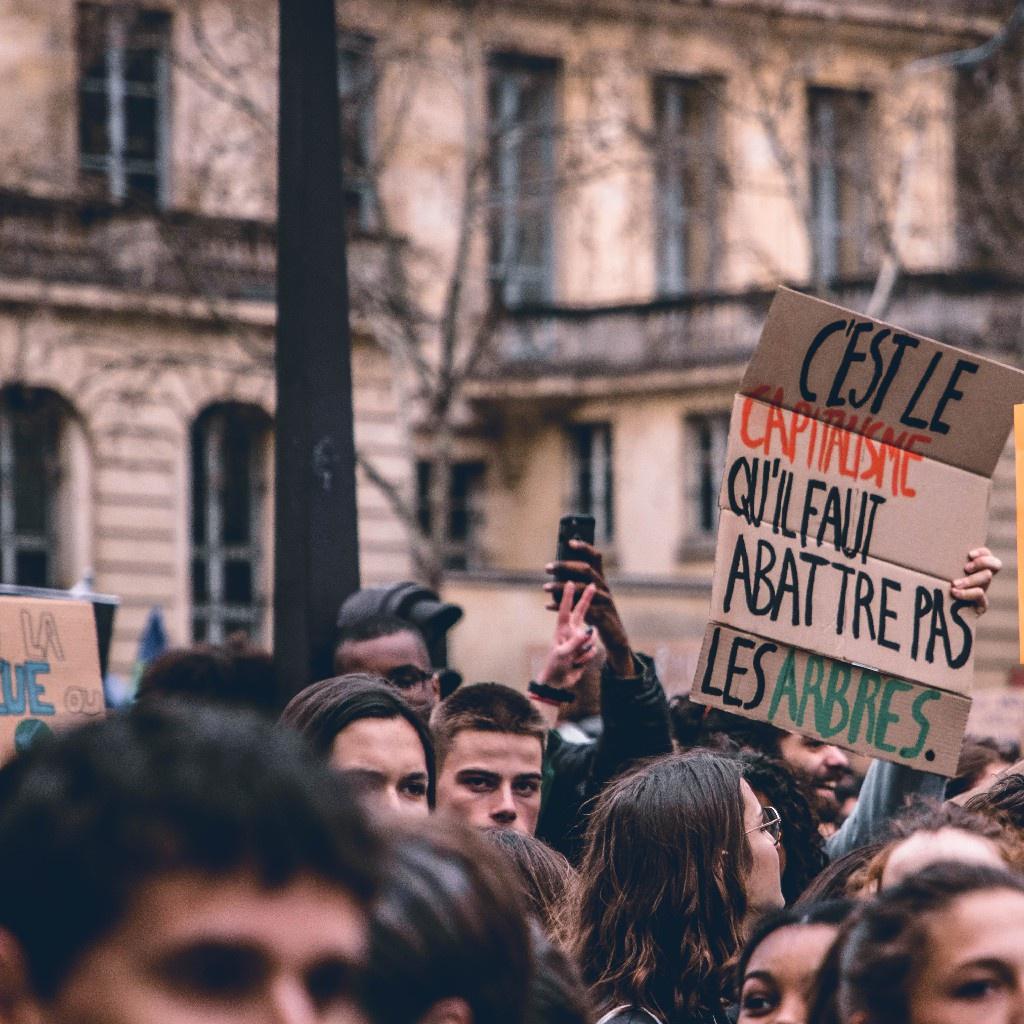 C'EST LE
CAPITALISME
QU'IL FAUT
ABATTRE PAS
LES ARBRES.
LA
OU